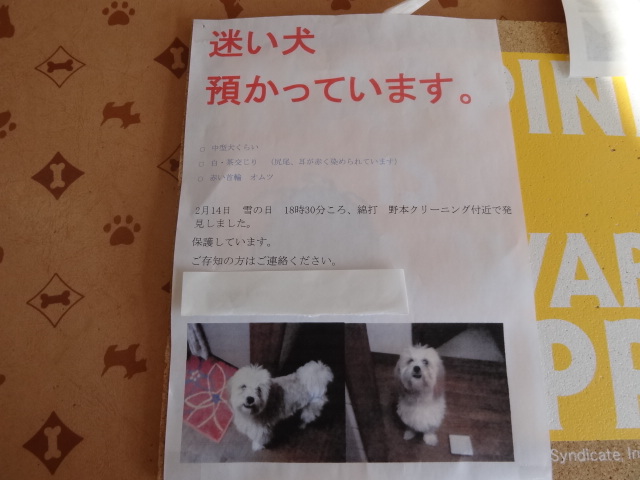 迷い犬
預かっています。
○ 中型犬くらい
○ 白・茶混じり （尻尾、耳が赤く染められています）
○ 赤い首輪 オムツ
2月14日 雪の日 18時30分ころ、綿打 野本クリーニング付近で発
見しました。
保護しています。
ご存知の方はご連絡ください。
PIN
WAR
PP
Syndicate In